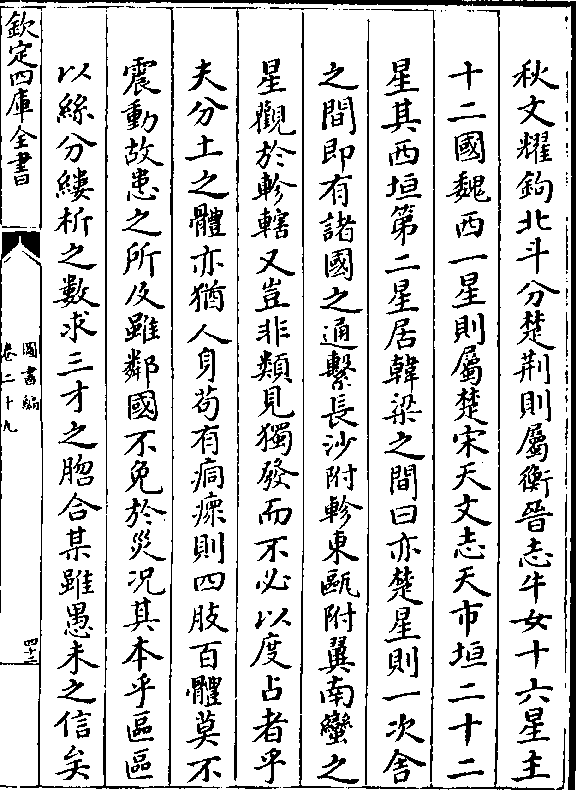 秋文耀鉤北斗分楚荆則屬衡晉志牛女十六星主
十二國魏西一星則屬楚宋天文志天市垣二十二
星其西垣第二星居韓梁之間曰亦楚星則一次舍
之間即有諸國之通繫長沙附軫東甌附翼南蠻之
星觀於軫轄又豈非類見獨發而不必以度占者乎
夫分土之體亦猶人身茍有痌瘝則四肢百體莫不
震動故患之所及雖鄰國不免於災况其本乎區區
以絲分縷析之數求三才之脗合某雖愚未之信矣
欽定四庫全書
圖書編
卷二十九
四十三